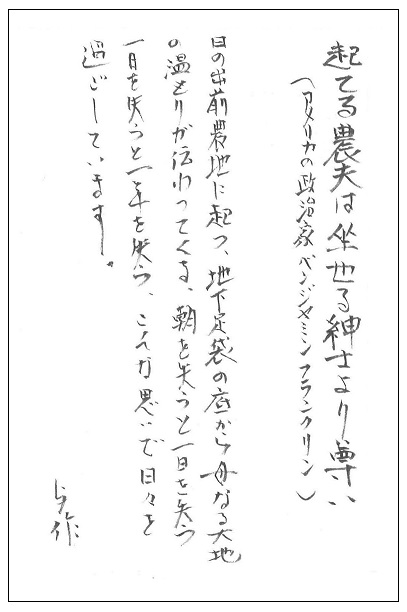 起てる農夫は坐せる紳士より尊い
(アメリカの政治家ベンジャミンフランクリン)
日の出前農地に起つ、地下足袋の底から母なる大地
の温もりが伝わってくる、朝を失うと一日を失う
一日を失うと一年を失う、こんな思いで日々を
過ごしています。
作